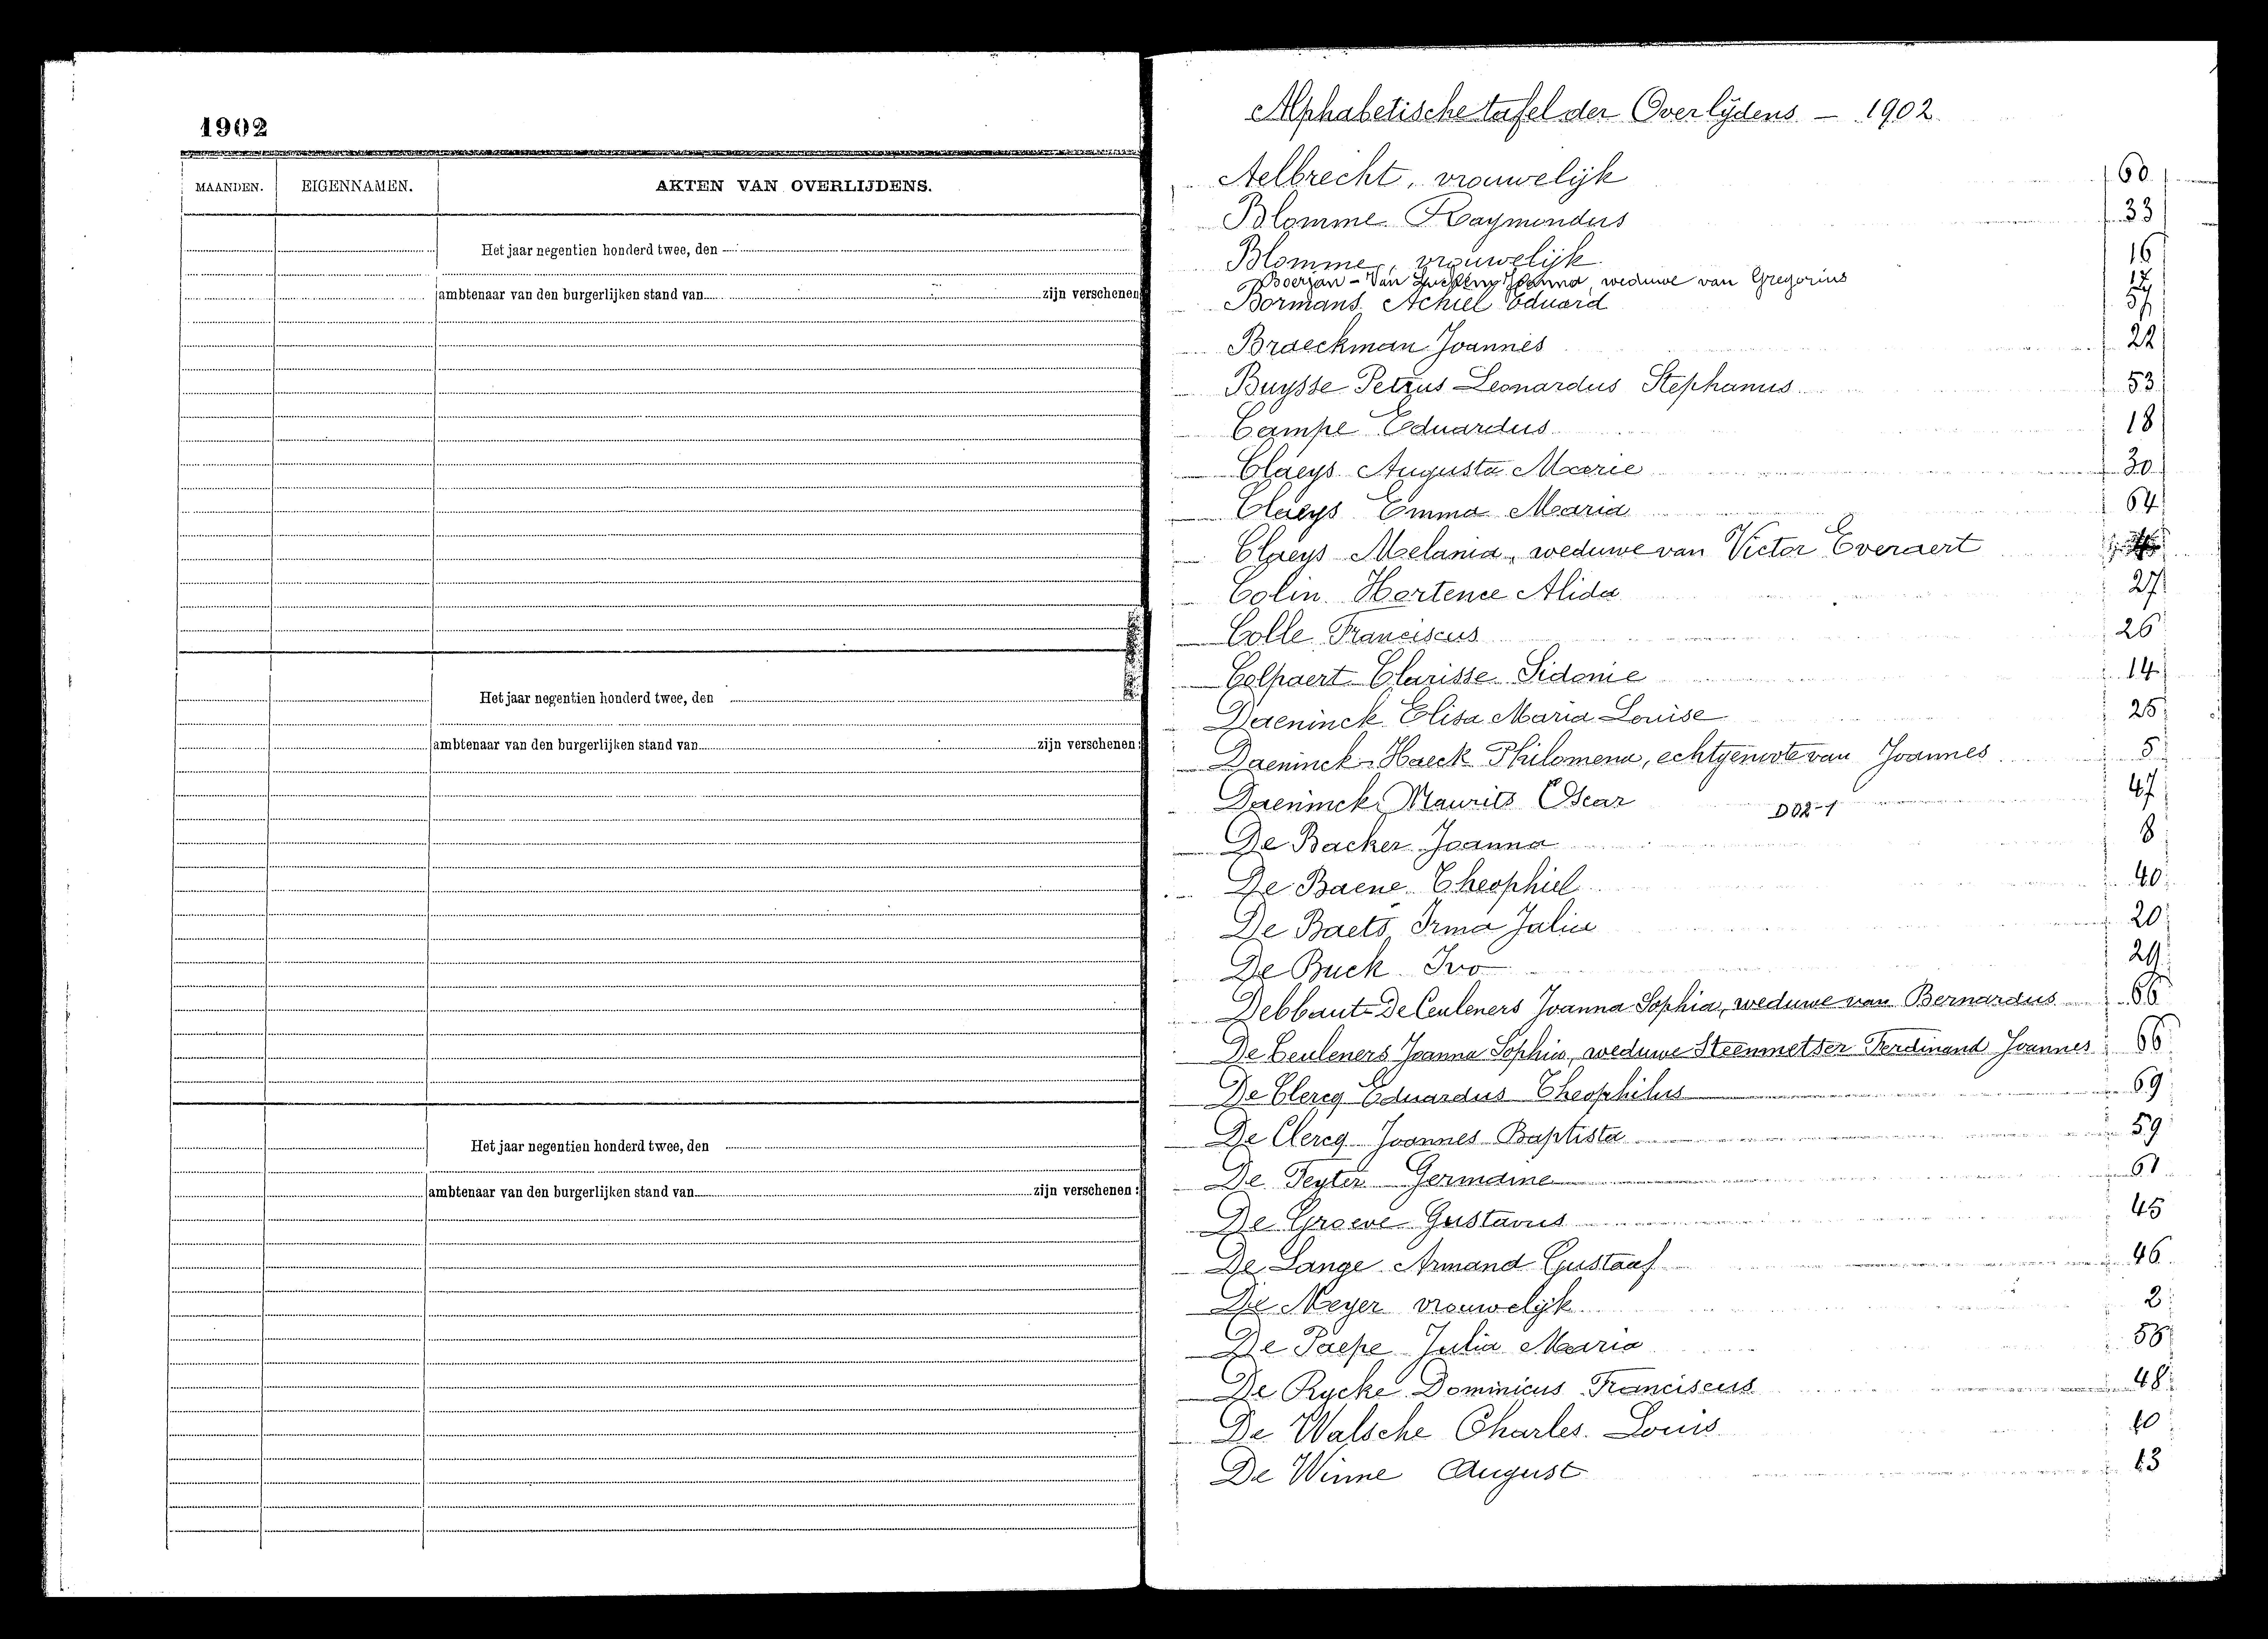 1902
MAANDEN. EIGENNAMEN. AKTEN VAN OVERLIJDENS.
Het jaar negentien honderd twee, den
ambtenaar van den burgerlijken stand van zijn verschenen
Het jaar negentien honderd twee, den
ambtenaar van den burgerlijken stand van zijn verschenen:
Het jaar negentien honderd twee, den
ambtenaar van den burgerlijken stand van zijn verschenen:
Alphabetische tafel der Overlijdens – 1902.
Aelbrecht, vrouwelijk 60
Blomme Raymondus 33
Blomme, vrouwelijk 16
Boerjan - Van Joanna, weduwe van Gregorius 12
Bormans Achiel Eduard 57
Braeckman Joannes 22
Buysse Petrus Leonardus Stephanus 53
Campe Eduardus 18
Claeys Augusta Marie 30
Claeys Emma Maria 64
Claeys Melania, weduwe van Victor Everaert
Colin Hortence Alida 27
Colle Franciscus 26
Colpaert Clarisse Sidonie 14
Daeninck Elisa Maria Louise 25
Daeninck-Haeck Philomena, echtgenote van Joannes 5
Daeninck Maurits Oscar 47
D02-1
De Backer Joanna 8
De Baene Theophiel 40
De Baets Irma Julia 20
De Buck Ivo 29
Debbaut-De Ceuleners Joanna Sophia, weduwe van Bernardus 66
De Ceuleners Joanna Sophia, weduwe Steenmetser Ferdinand Joannes 66
De Clercq Eduardus Theophilus 69
De Clercq Joannes Baptista 59
De Feyter Germaine 61
De Groeve Gustavus 45
De Lange Armand Gustaaf 46
De Meyer vrouwelijk 2
De Paepe Julia Maria 56
De Rycke Dominicus Franciscus 48
De Walsche Charles Louis 10
De Winne August 13